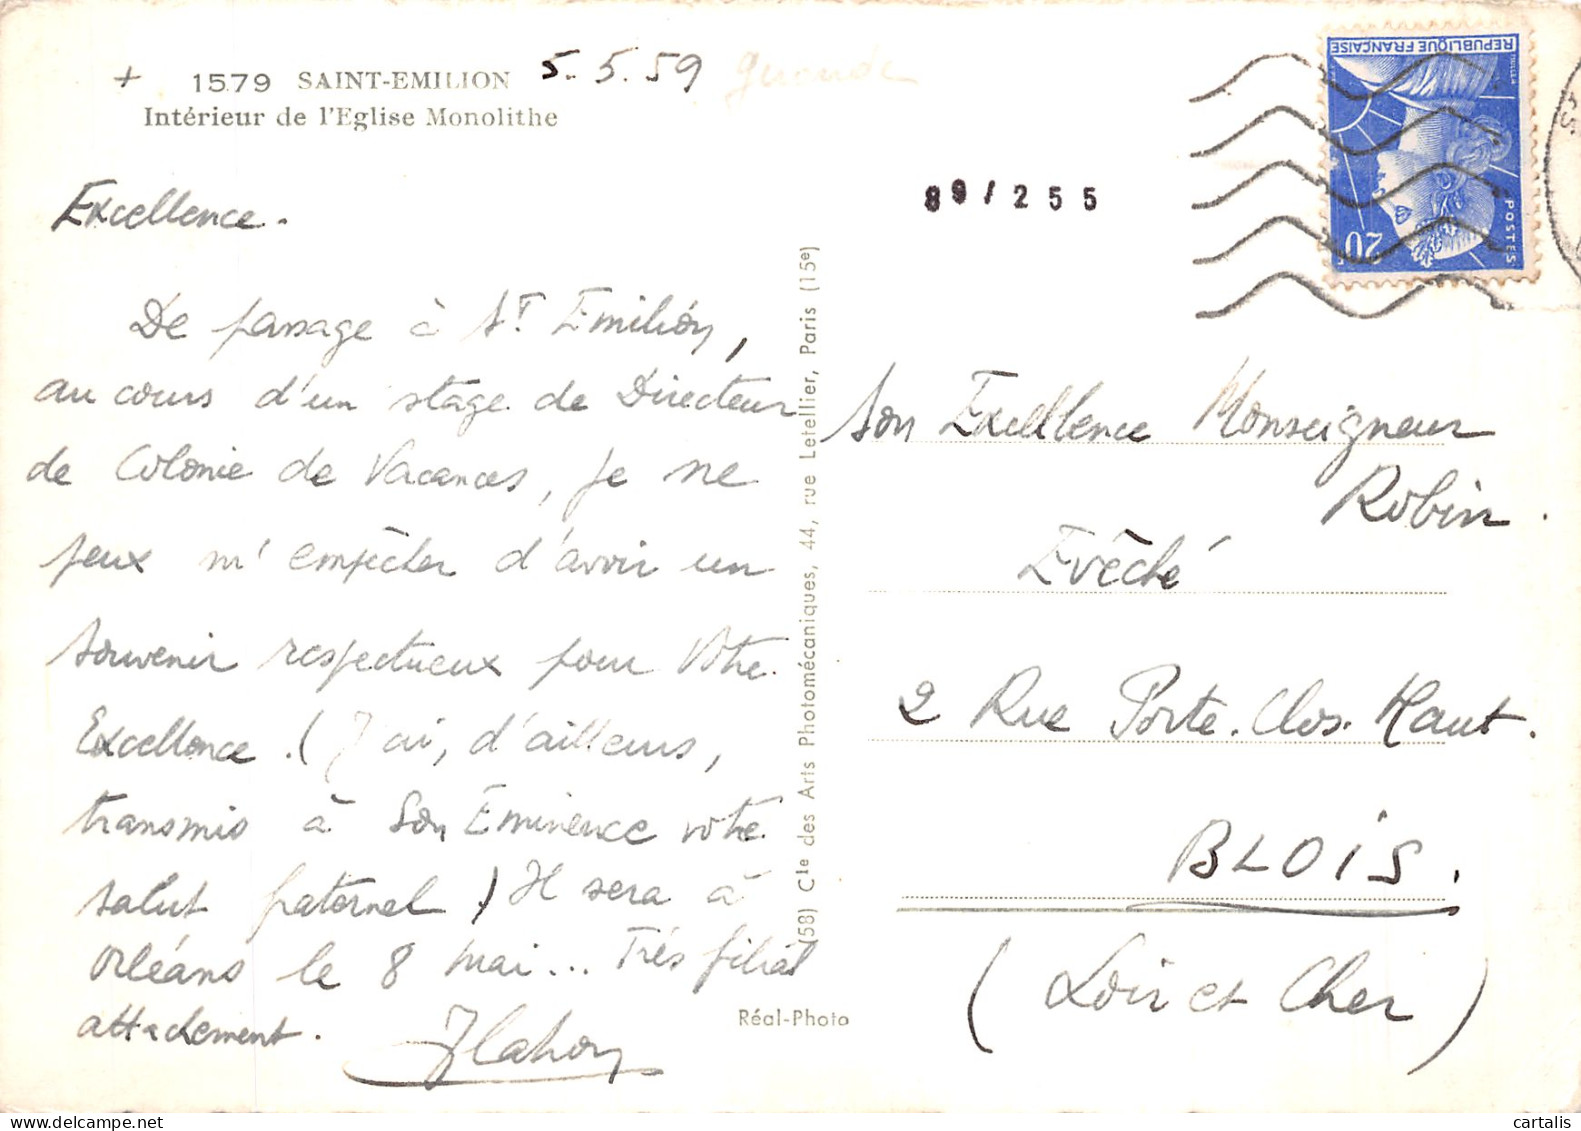 + 1579 SAINT-EMILION 5.5.59 Gironde
Intérieur de l'Eglise Monolithe
89/255
REPUBLIQUE FRANÇAISE
POSTES
20F
Excellence.
De passage à St Emilion,
au cours d'un stage de Directeur
de Colonie de Vacances, je ne
peux m'empêcher d'avoir un
souvenir respectueux pour Votre
Excellence. (J'ai, d'ailleurs,
transmis à Son Eminence votre
salut paternel) Il sera à
Orléans le 8 mai... Très filial
attachement.
(58) Cie des Arts Photomécaniques, 44, rue Letellier, Paris (15e)
Réal-Photo
Son Excellence Monseigneur
Robin.
Evêché
2 Rue Porte-Clos-Haut.
BLOIS.
(Loir et Cher)
cartalis